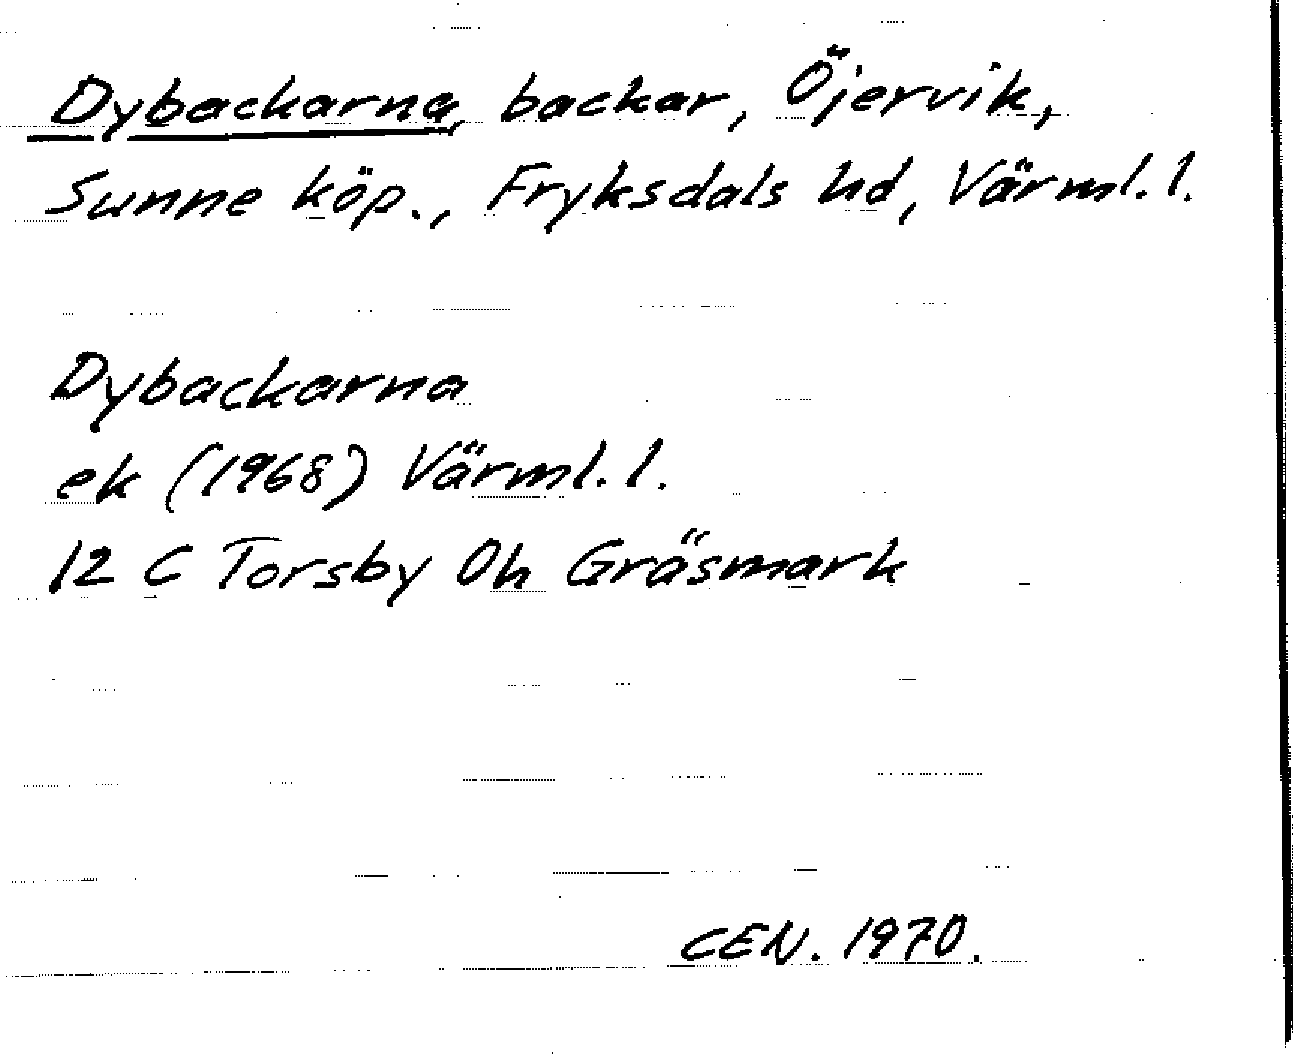 Dybackarna, backar, Öjervik,
Sunne köp., Fryksdals hd, Värml. l.
Dybackarna
ek (1968) Värml. l.
12 C Torsby 0h Gräsmark
CEN. 1970.